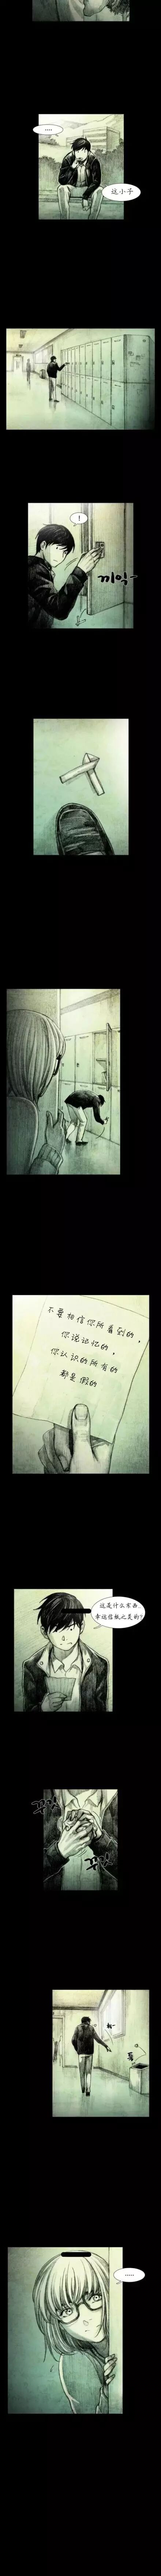 ....
这小子
!
끼익-
不要相信你所看到的,
你说记忆的,
你认识的所有的
都是假的
这是什么东西.
幸运信极之类的?
.....